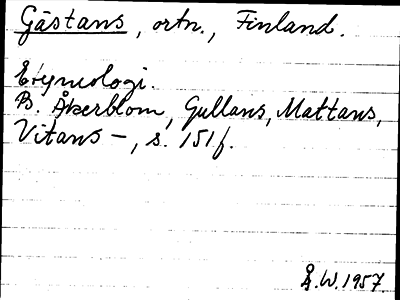 Gästans, ortn., Finland.
Etymologi.
B. Åkerblom, Gullans, Mattans,
Vitans –, s. 151f.
Å.W. 1957.